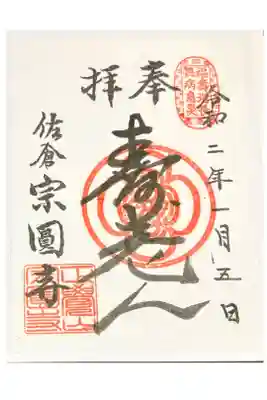 奉拝
令和二年一月五日
寿老人
佐倉 宗圓寺